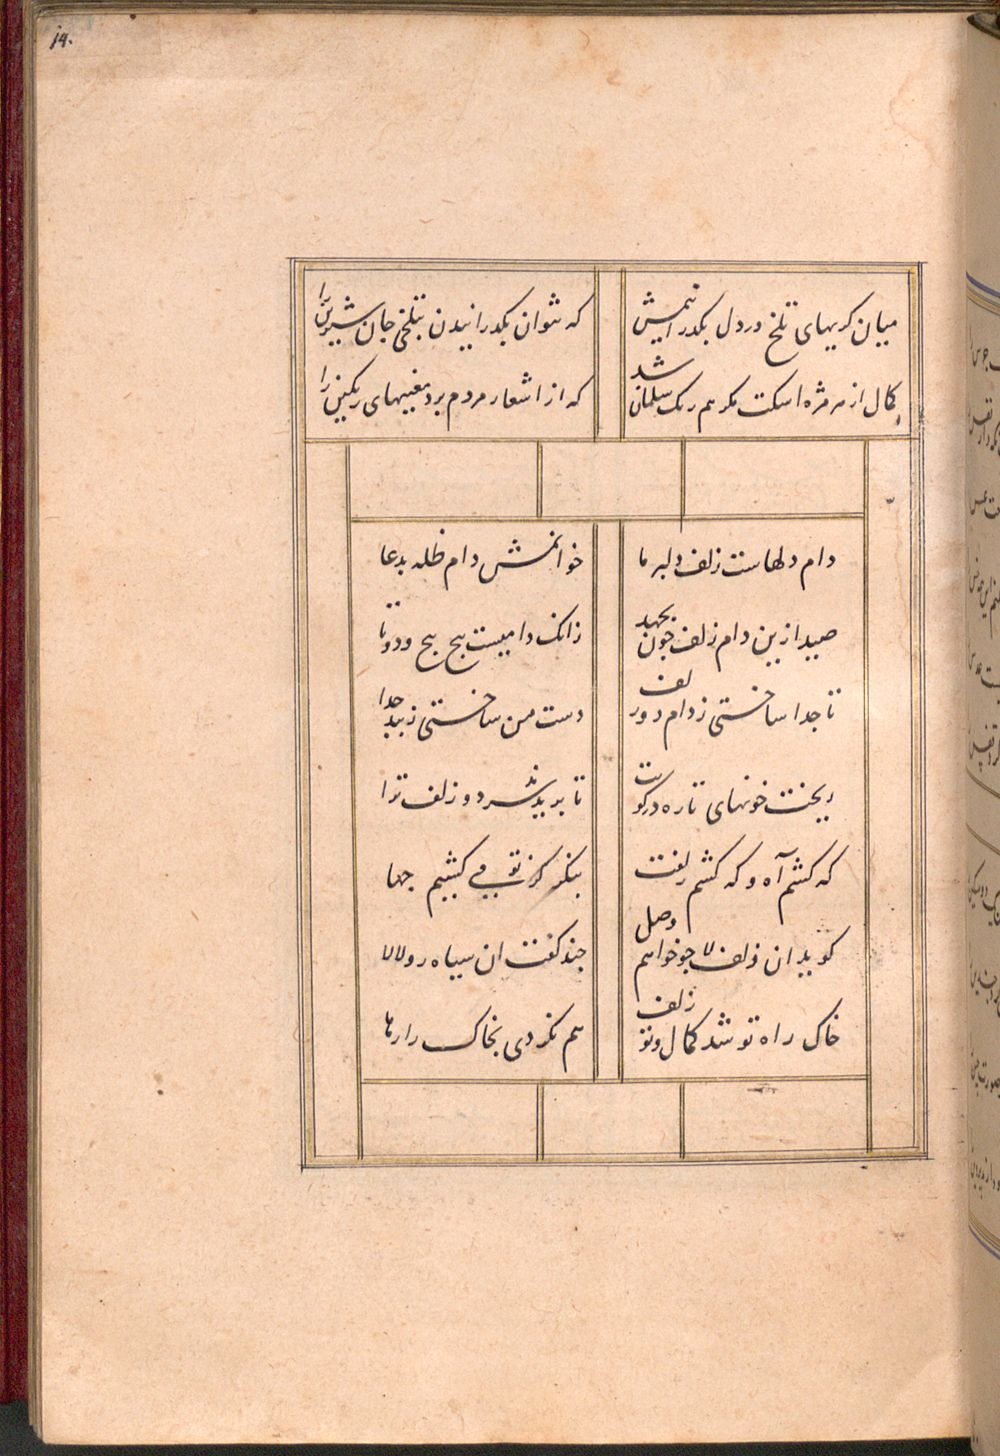 ۱۴۰
میان کریهای تلخ در دل بکدر انیمش
که نتوان بکدرانیدن بتلخی جان شیرین را
کمال از هر مژه اشکت مکر هم رنک سلمان شد
که از اشعار مردم برد معنیهای رنکین را
دام دلهاست زلف دلبر ما
خوانمش دام ظله بدعا
صید ازین دام زلف چون بجهد
زانک دامیست پیچ پیچ و دوتا
تا جدا ساختی ز دام دو زلف
دست من ساختی ز بند جدا
ریخت خونهای تازه در کویت
تا بریدند سر دو زلف ترا
که کشم آه و که کشم زلفت
بنکر کز تو می کشیم جها
کوید ان زلف لا چو خواهم وصل
چند کفت ان سیاه رو لالا
خاک راه تو شد کمال و تو زلف
هم نکردی بخاک را رها